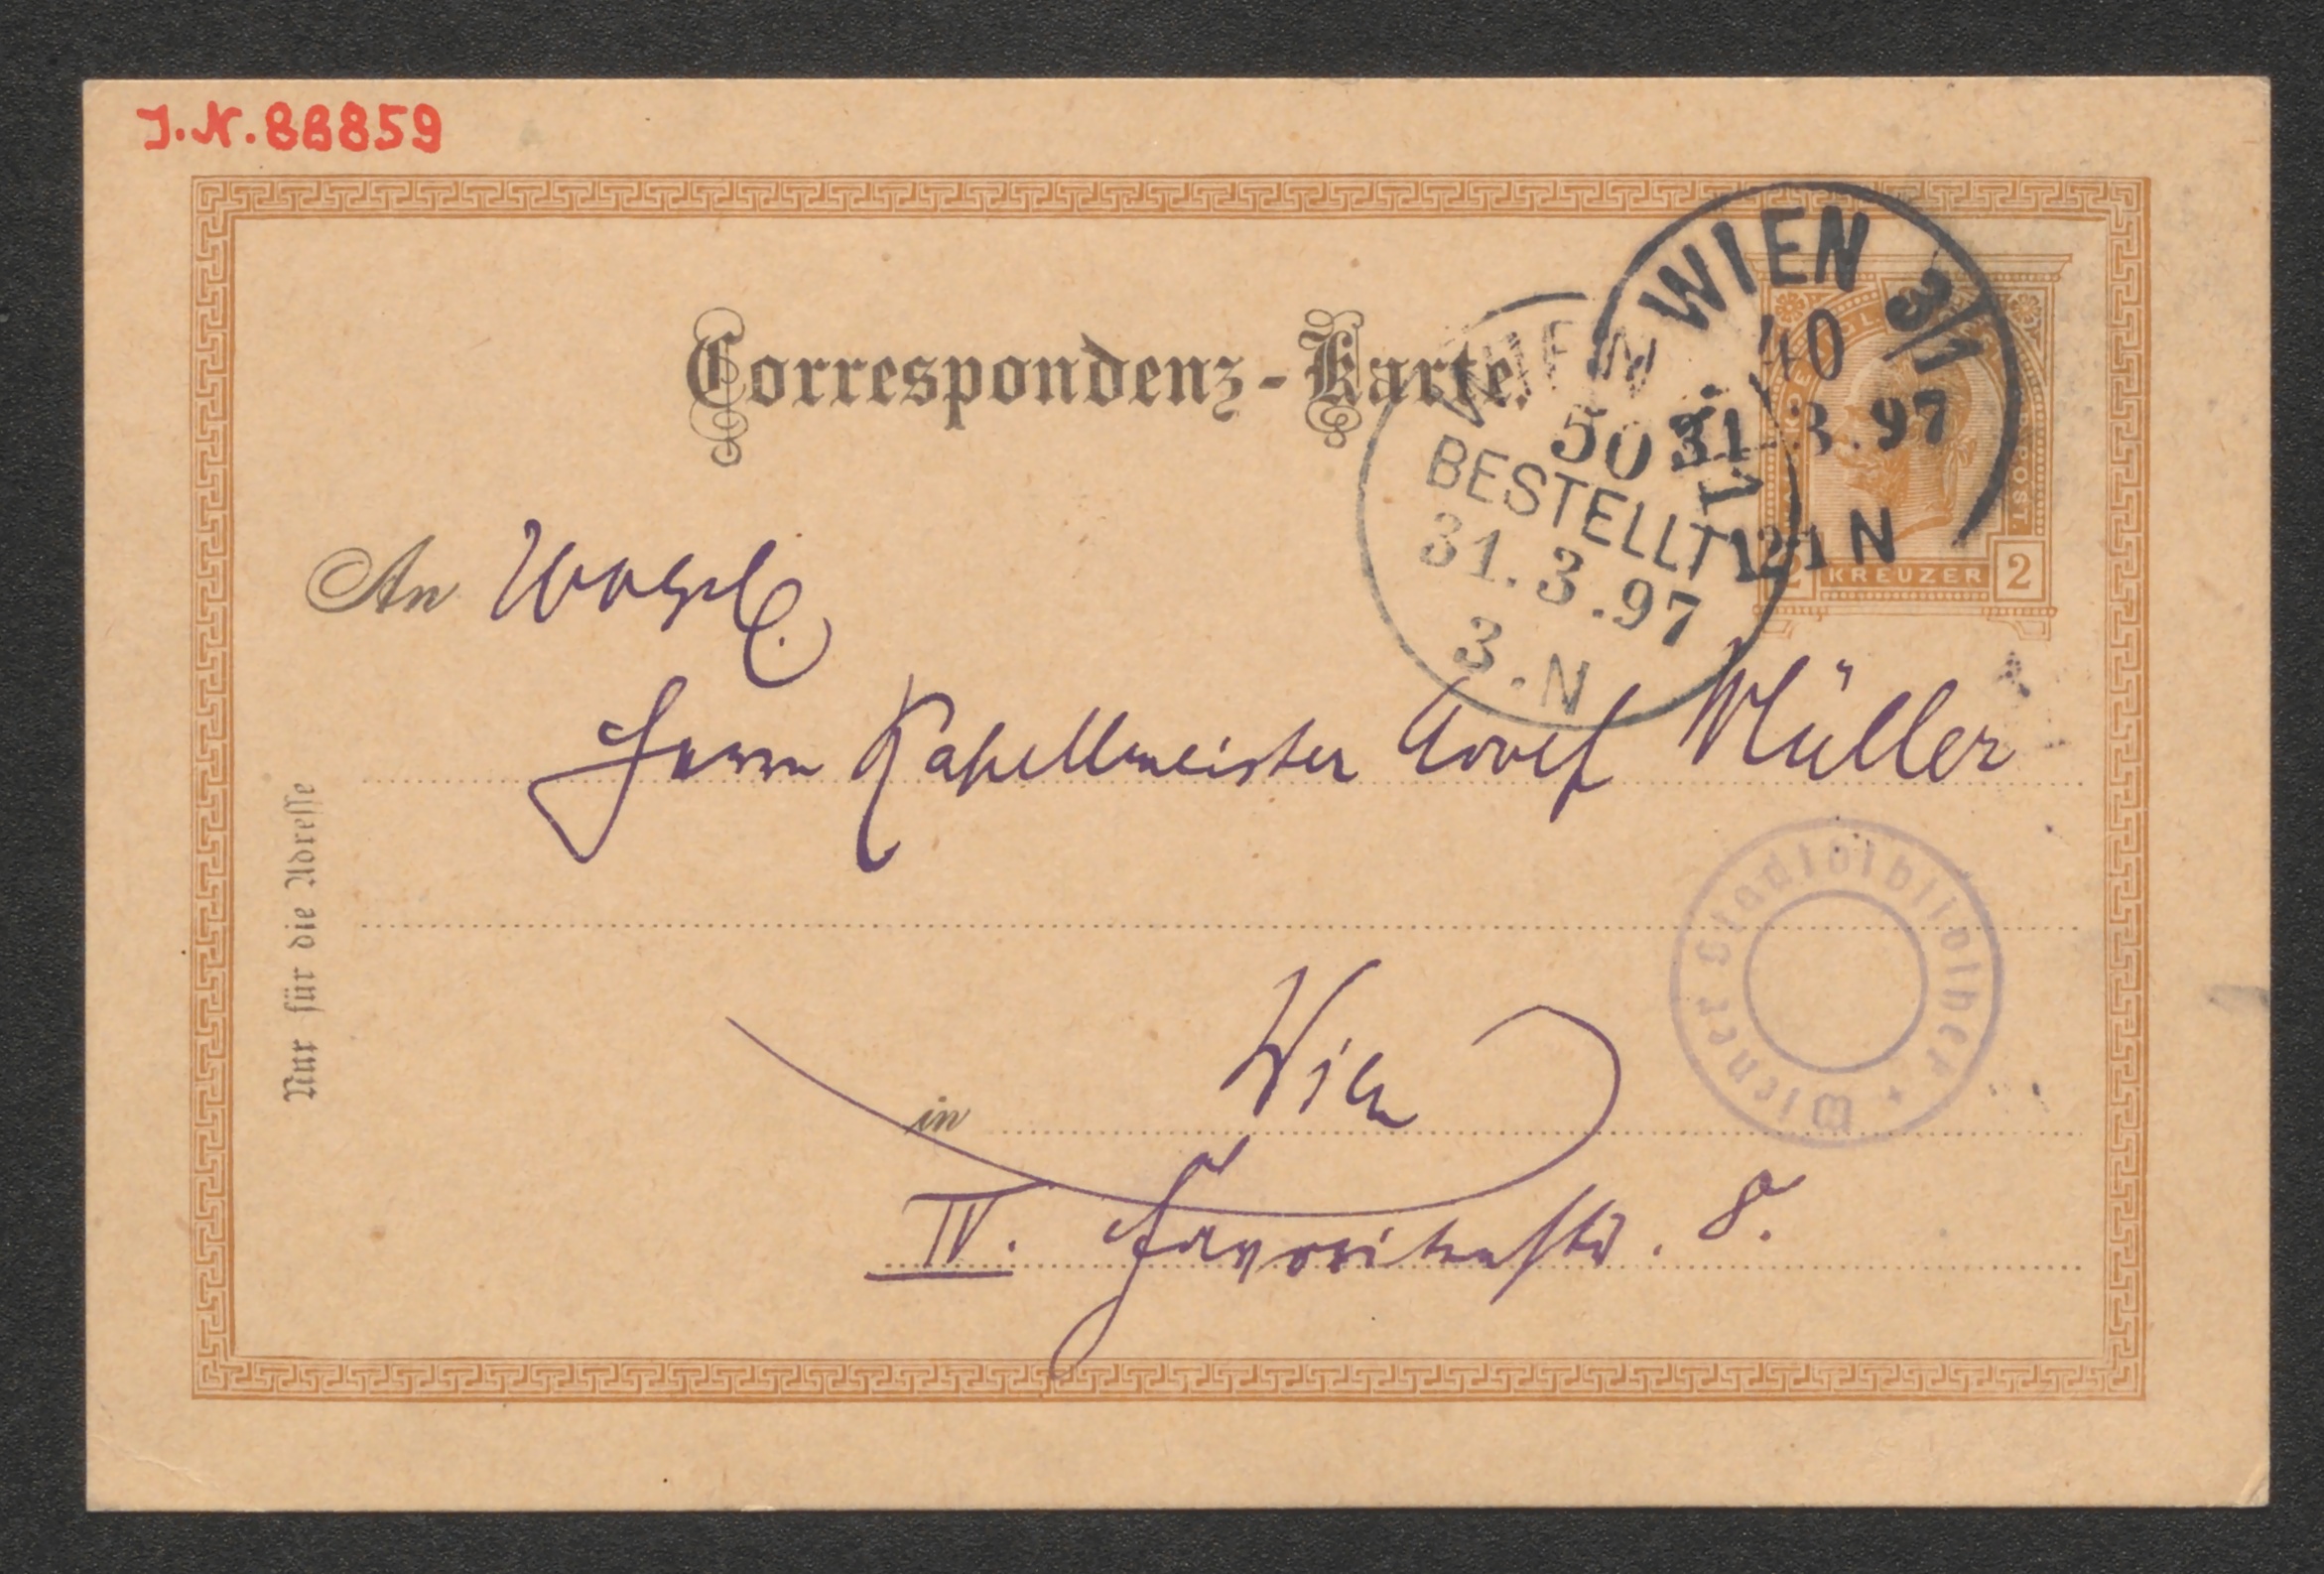 J.N. 88859
Correspondenz-Karte.
WIEN 3/1
40
31.3.97
12-1N
WIEN
50
BESTELLT
31.3.97
3.N
2 KREUZER 2
An Wohlg.
Herrn Kapellmeister Adolf Müller
Nur für die Adresse
Wiener Stadtbibliothek
in Wien
IV. Favoritenstr. 8.